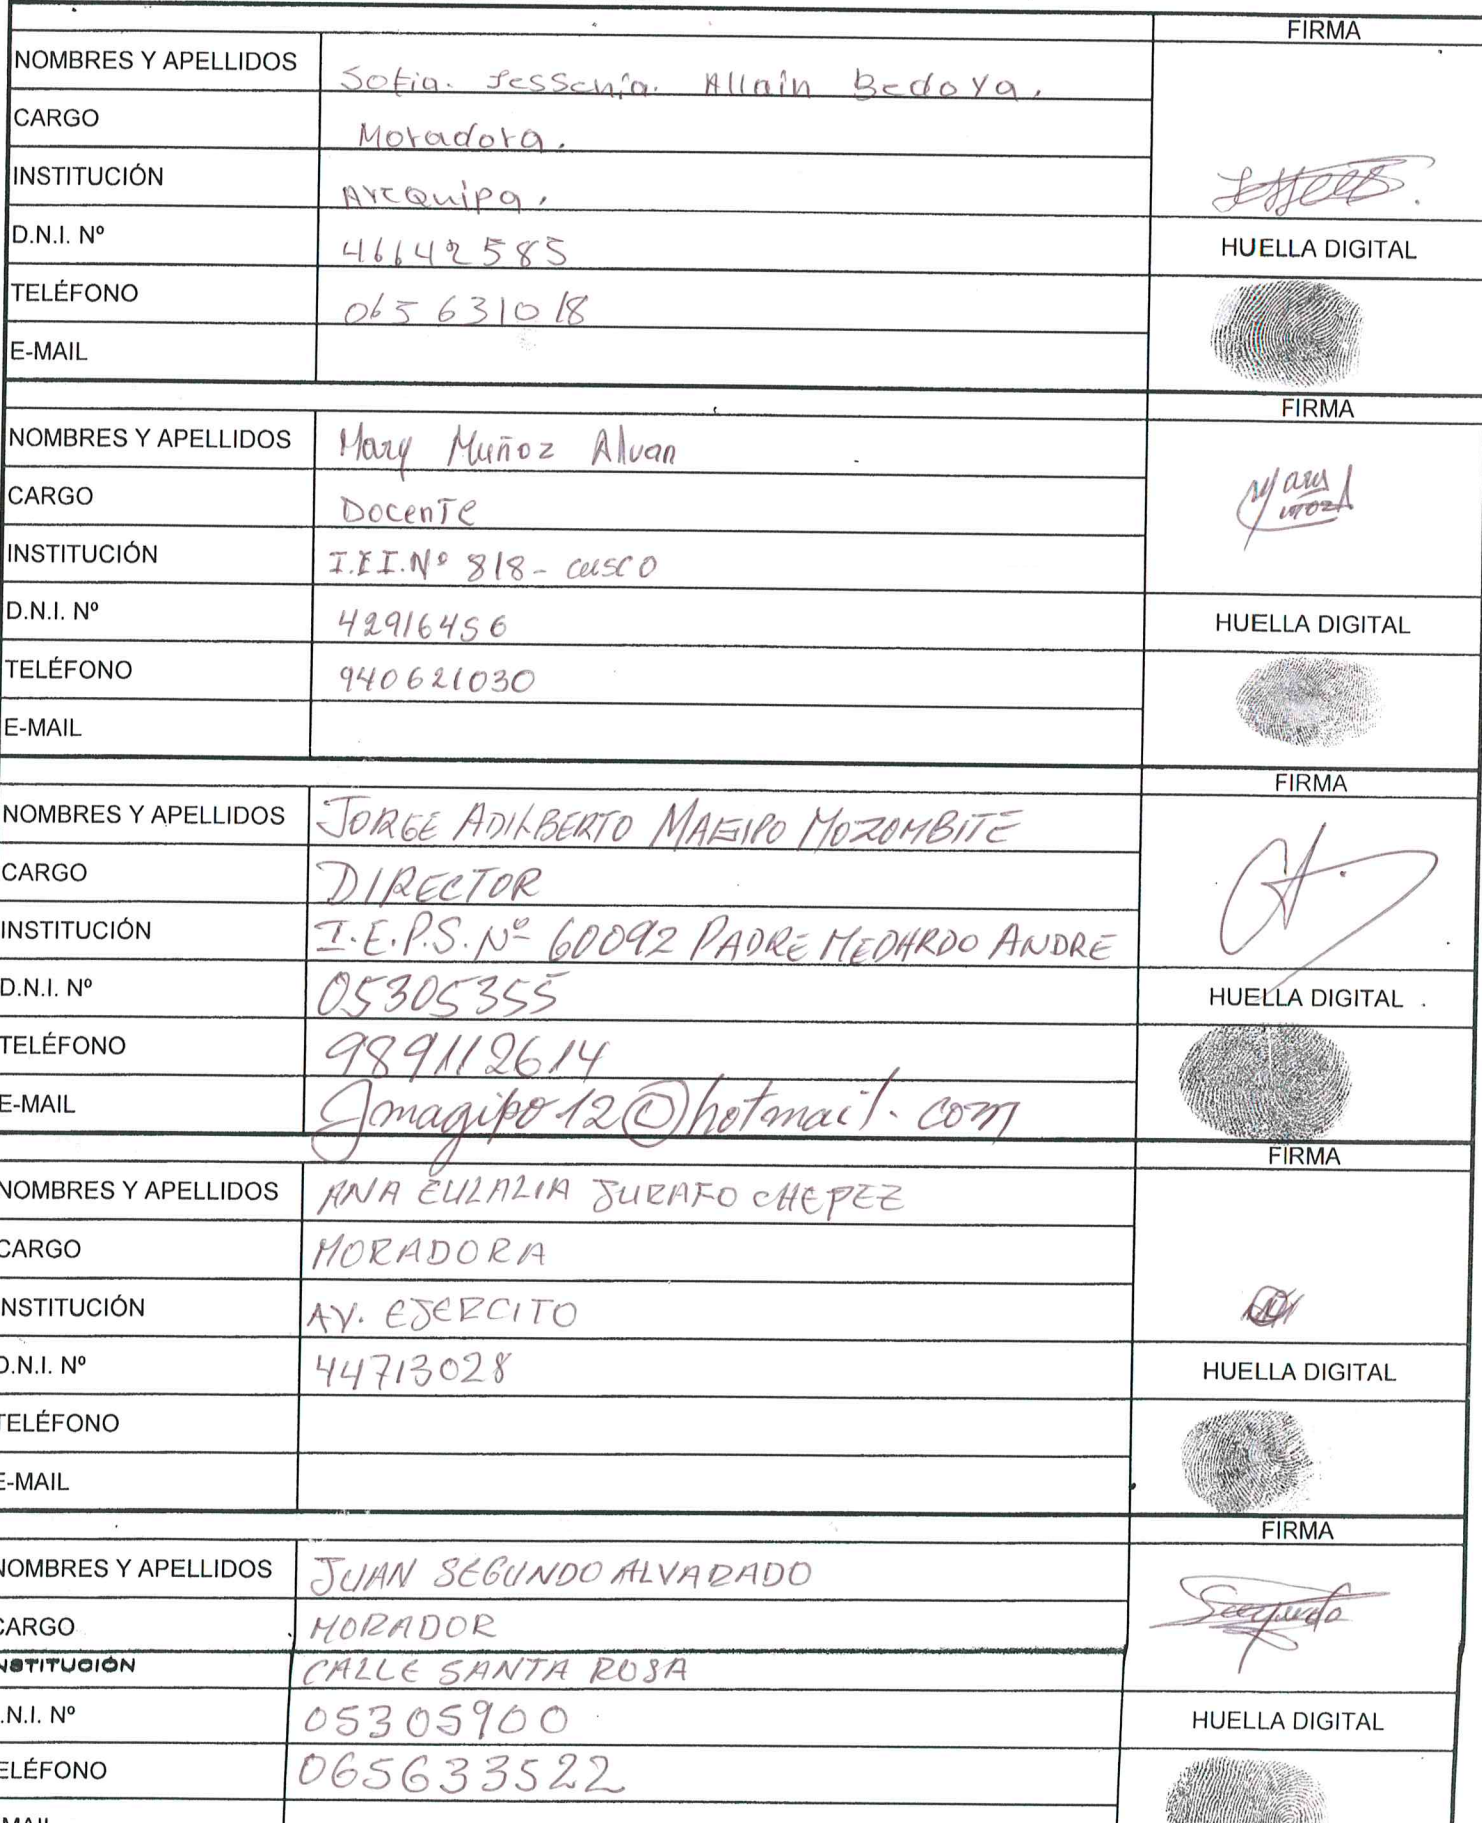 FIRMA
NOMBRES Y APELLIDOS Sofia. Jessenia. Allain Bedoya.
CARGO Moradora.
INSTITUCIÓN Arequipa.
D.N.I. Nº 46642585
HUELLA DIGITAL
TELÉFONO 065 631018
E-MAIL
FIRMA
NOMBRES Y APELLIDOS Mary Muñoz Alvan
CARGO Docente
INSTITUCIÓN I.E.I. Nº 818 - cusco
D.N.I. Nº 42916456
HUELLA DIGITAL
TELÉFONO 940621030
E-MAIL
FIRMA
NOMBRES Y APELLIDOS JORGE ADILBERTO MAGIPO MOZOMBITE
CARGO DIRECTOR
INSTITUCIÓN I.E.P.S. Nº 60092 PADRE MEDARDO ANDRE
D.N.I. Nº 05305355
HUELLA DIGITAL
TELÉFONO 989112614
E-MAIL Jmagipo12@hotmail.com
FIRMA
NOMBRES Y APELLIDOS ANA EULALIA CHEPEZ
CARGO MORADORA
INSTITUCIÓN AV. EJERCITO
D.N.I. Nº 44713028
HUELLA DIGITAL
TELÉFONO
E-MAIL
FIRMA
NOMBRES Y APELLIDOS JUAN SEGUNDO ALVARADO
CARGO MORADOR
INSTITUCIÓN CALLE SANTA ROSA
.N.I. Nº 05305900
HUELLA DIGITAL
ELÉFONO 065633522
MAIL